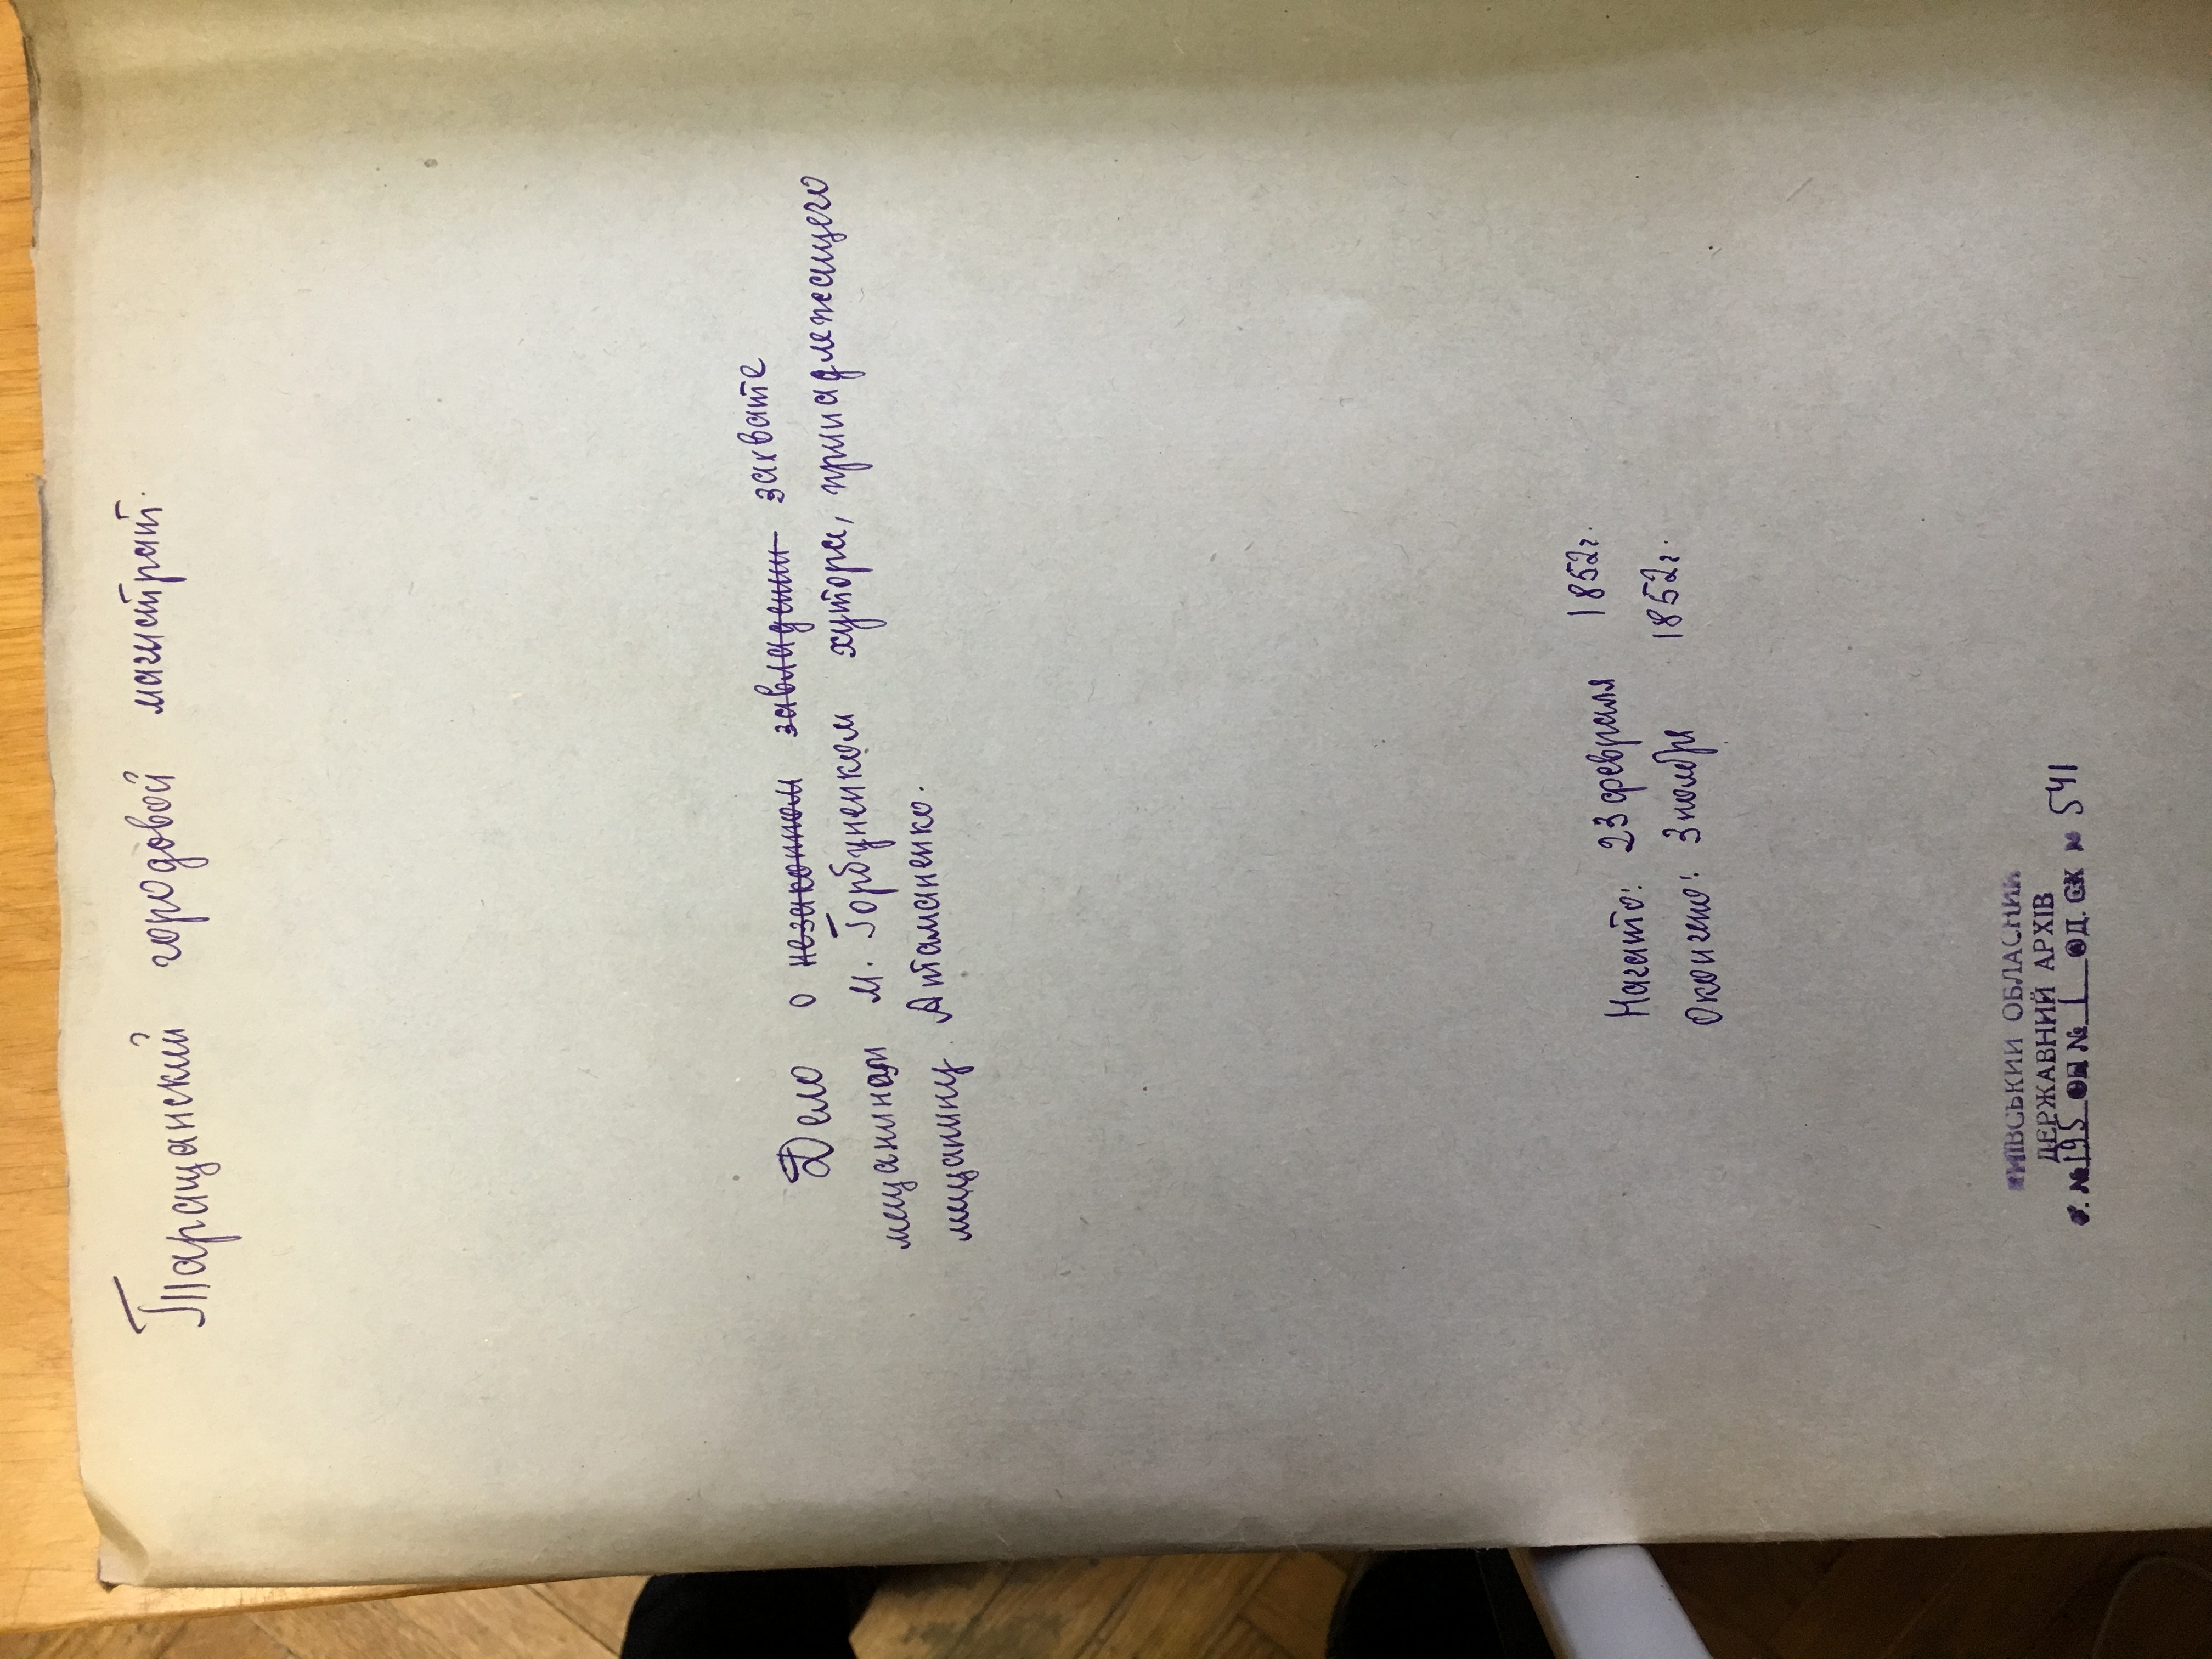 Таращанский городовой магистрат.
Дело о незаконном завладении захвате
мещанином М. Горбуненком хутора, принадлежащего
мещанину Атаманенко.
Начато: 23 февраля 1852г.
Окончено: 3 ноября 1852г.
КИЇВСЬКИЙ ОБЛАСНИЙ
ДЕРЖАВНИЙ АРХІВ
Ф. № 195 ОП № 1 ОД. ЗБ № 541